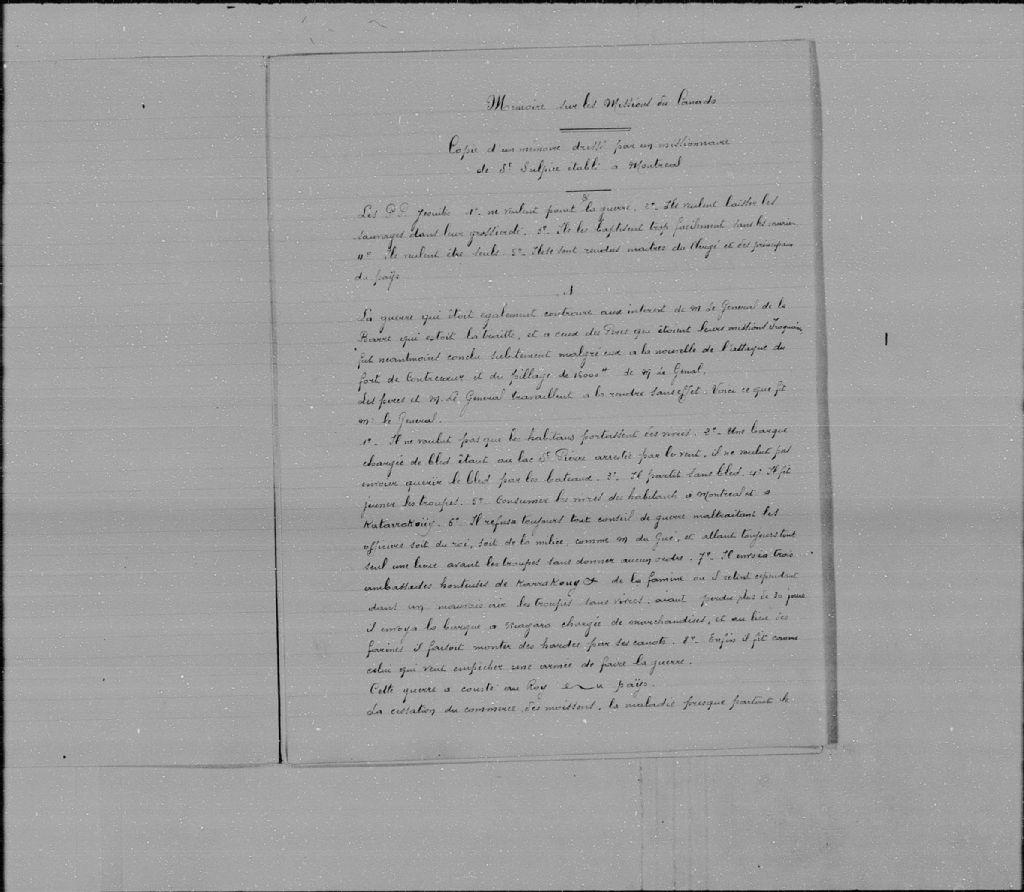 Memoire sur les Missions du Canada
Copie d'un memoire dressé par un missionnaire
de St Sulpice etabli a Montreal
Les P.P. Jesuites 1º ne veulent point la guerre. 2º Ils veulent laisser les
sauvages dans leur grossiereté. 3º Ils les baptisent trop facilement sans les
4º Ils veulent être seuls. 5º Ils se sont rendus maitres du Clergé et des principaux
du païs
La guerre qui étoit également contraire aux interest de M Le General de la
Barre qui estoit la traitte, et a ceux des Peres qui étoient leurs missions Iroquoises
fut neantmoins conclu subitement malgré eux a la nouvelle de l'attaque du
fort de et du pillage de 15000 tt de M Le Genal.
Les peres et M. Le General travaillent a la rendre sans effet. Voici ce que fit
M. le General.
1º Il ne voulut pas que les habitans portassent des vivres. 2º Une barque
chargée de bled étant au lac St Pierre arrestée par le vent, il ne voulut pas
envoier querir le bled par les bateaux. 3º Il partit sans bled. 4º Il fit
jeuner les troupes. 5º Consumer les vivres des habitants a Montreal et a
Katarrokoüy. 6º Il refusa toujours tout conseil de guerre maltraitant les
officiers soit du roi, soit de la milice, comme M du Gué, et allant toujours tout
seul une lieue avant les troupes sans donner aucun ordre. 7º Il envoia trois
ambassades honteuses de Karrakouy & de la famine ou il retint cependant
dans un mauvais air les troupes sans vivres. aiant perdu plus de 20 jours
il envoya la barque a Niagara chargée de marchandises, et au lieu des
farines il faisoit monter des hardes pour ses canots. 8º Enfin il fit comme
celui qui veut empêcher une armée de faire la guerre.
Cette guerre a cousté au Roy païs.
La cessation du commerce, des moissons, la maladie presque partout le